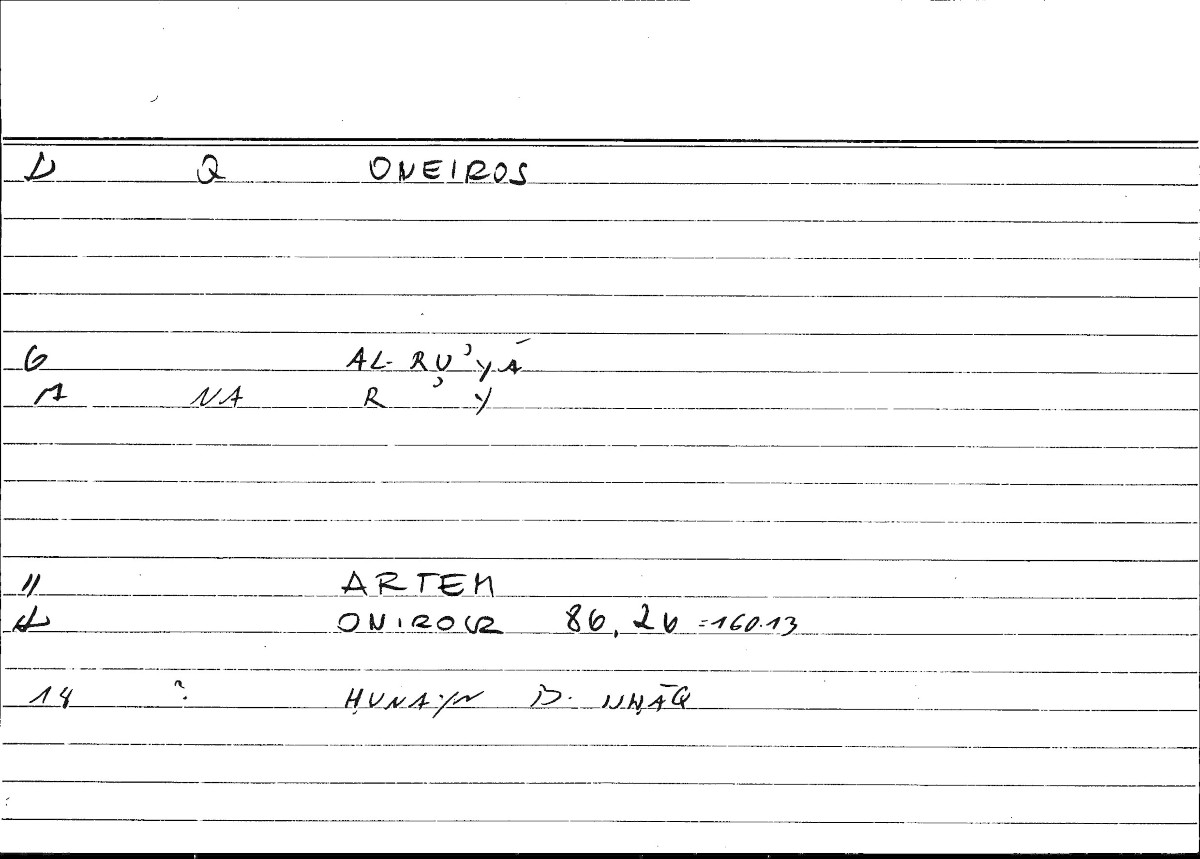 D Q ONEIROS
6 AL-RU'YĀ
7 NA R ' Y
11 ARTEM
12 ONIROCR 86,26 =160.13
14 ? ḤUNAYN B. ISḤĀQ